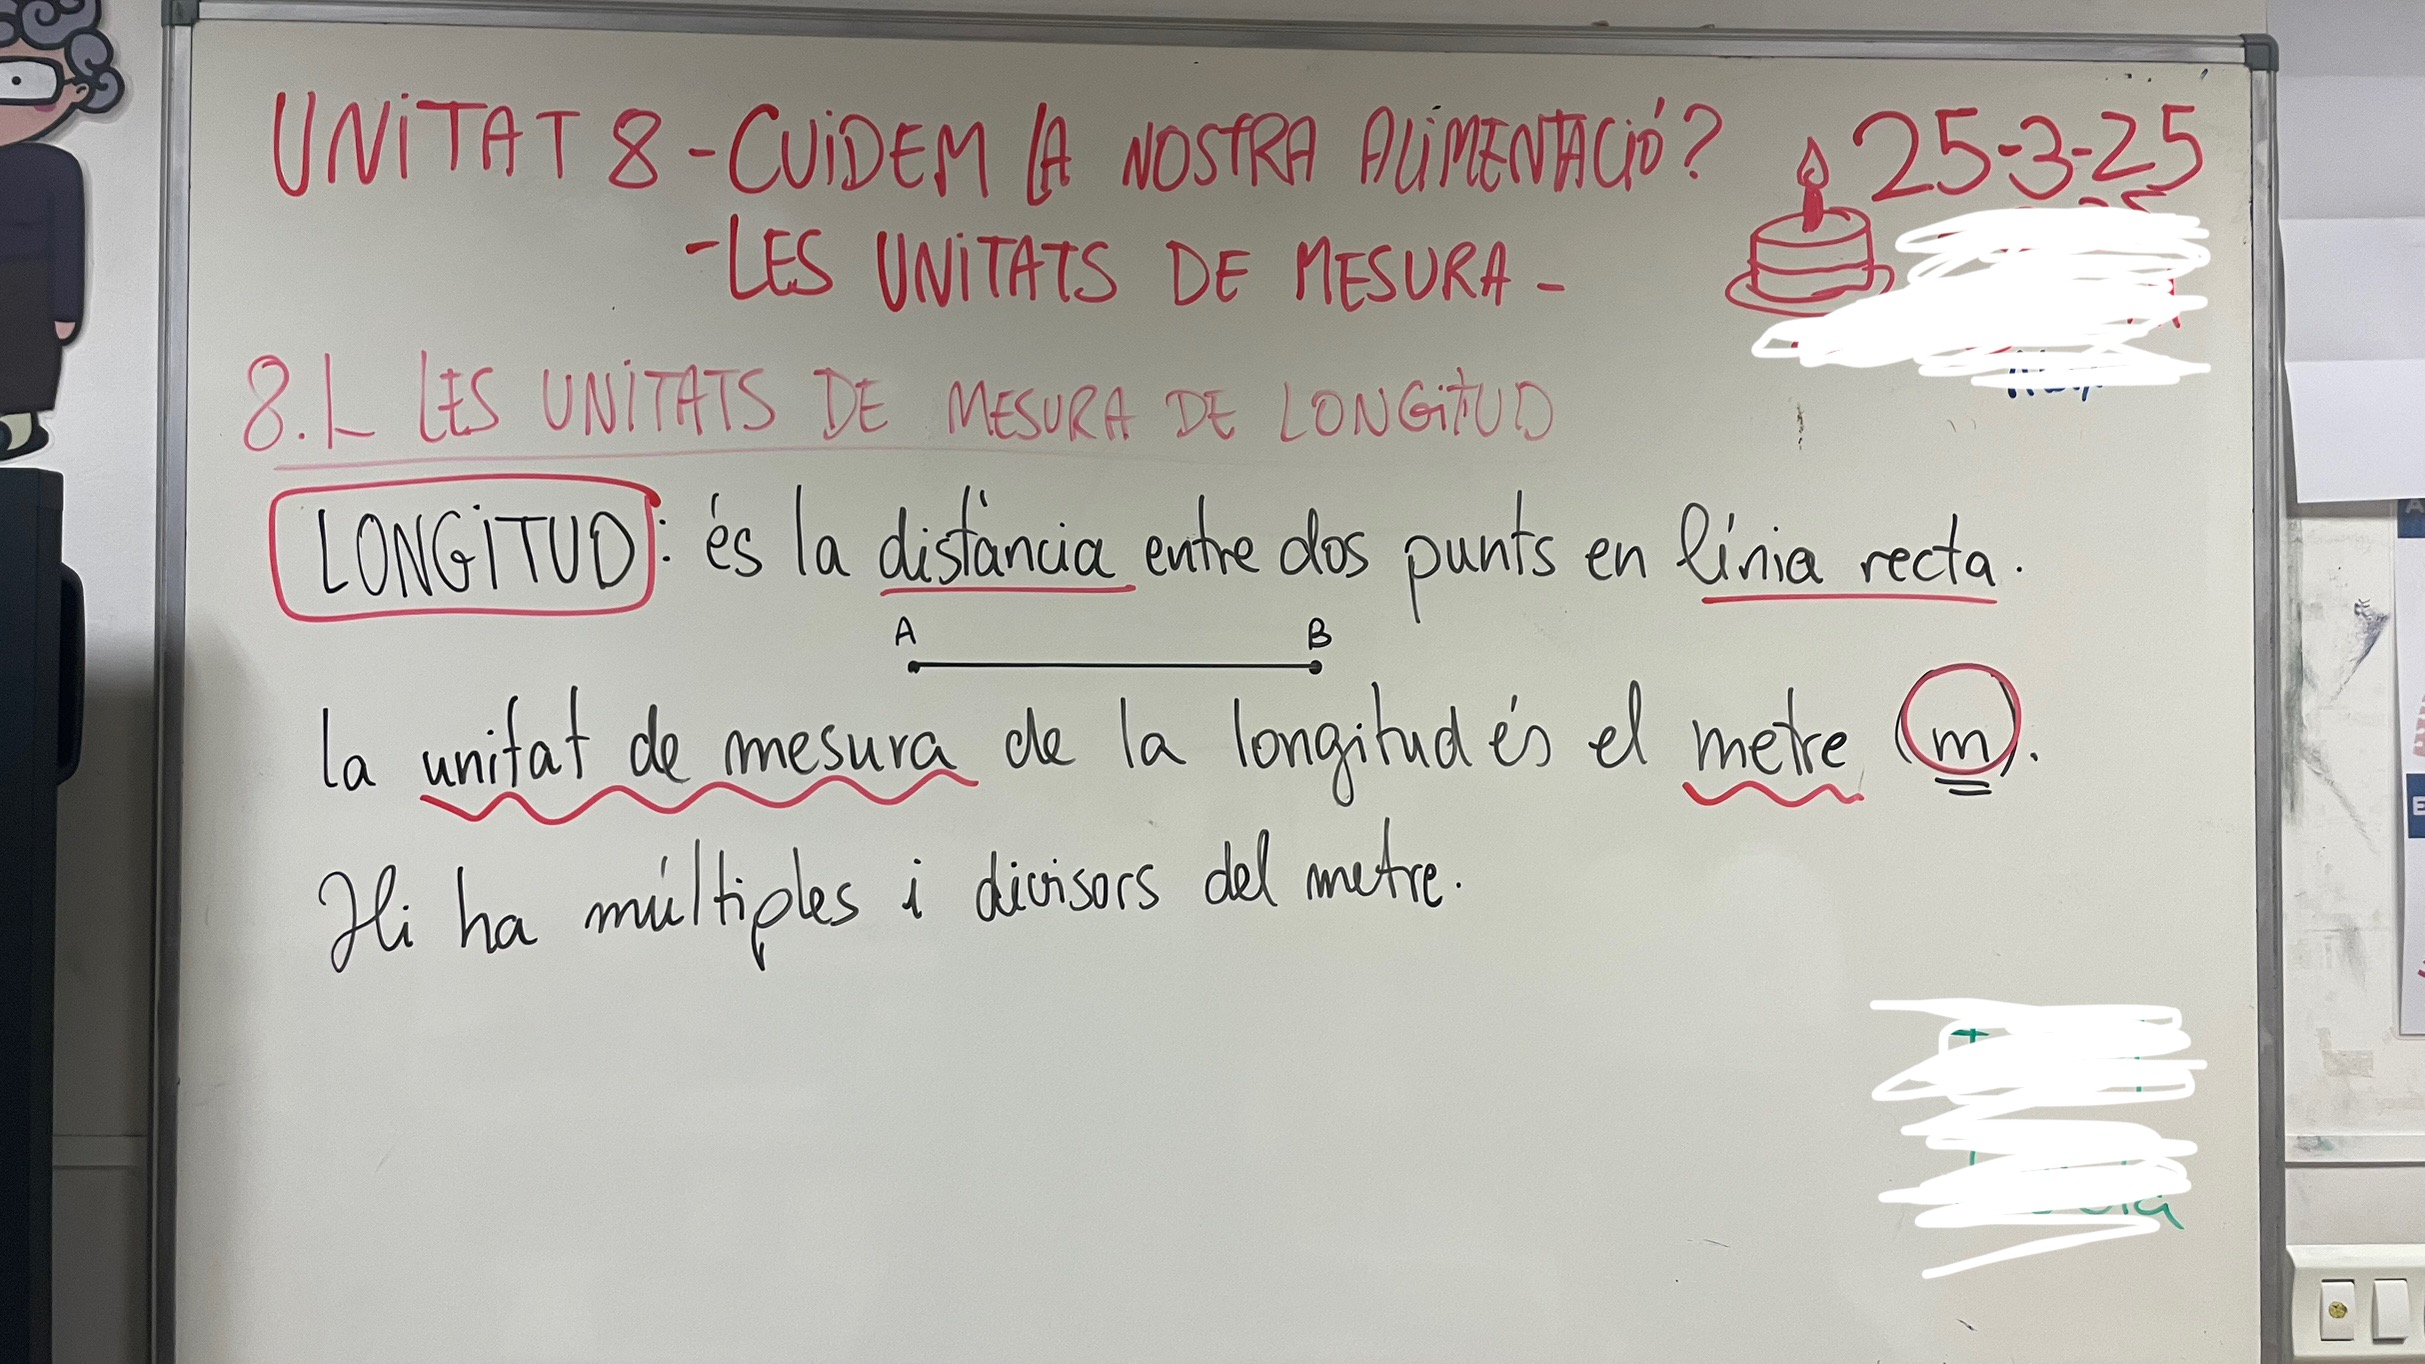 UNITAT 8 - CUIDEM LA NOSTRA ALIMENTACIÓ?
25-3-25
- LES UNITATS DE MESURA -
8.1 LES UNITATS DE MESURA DE LONGITUD
LONGITUD: és la distància entre dos punts en línia recta.
A B
La unitat de mesura de la longitud és el metre (m).
Hi ha múltiples i divisors del metre.